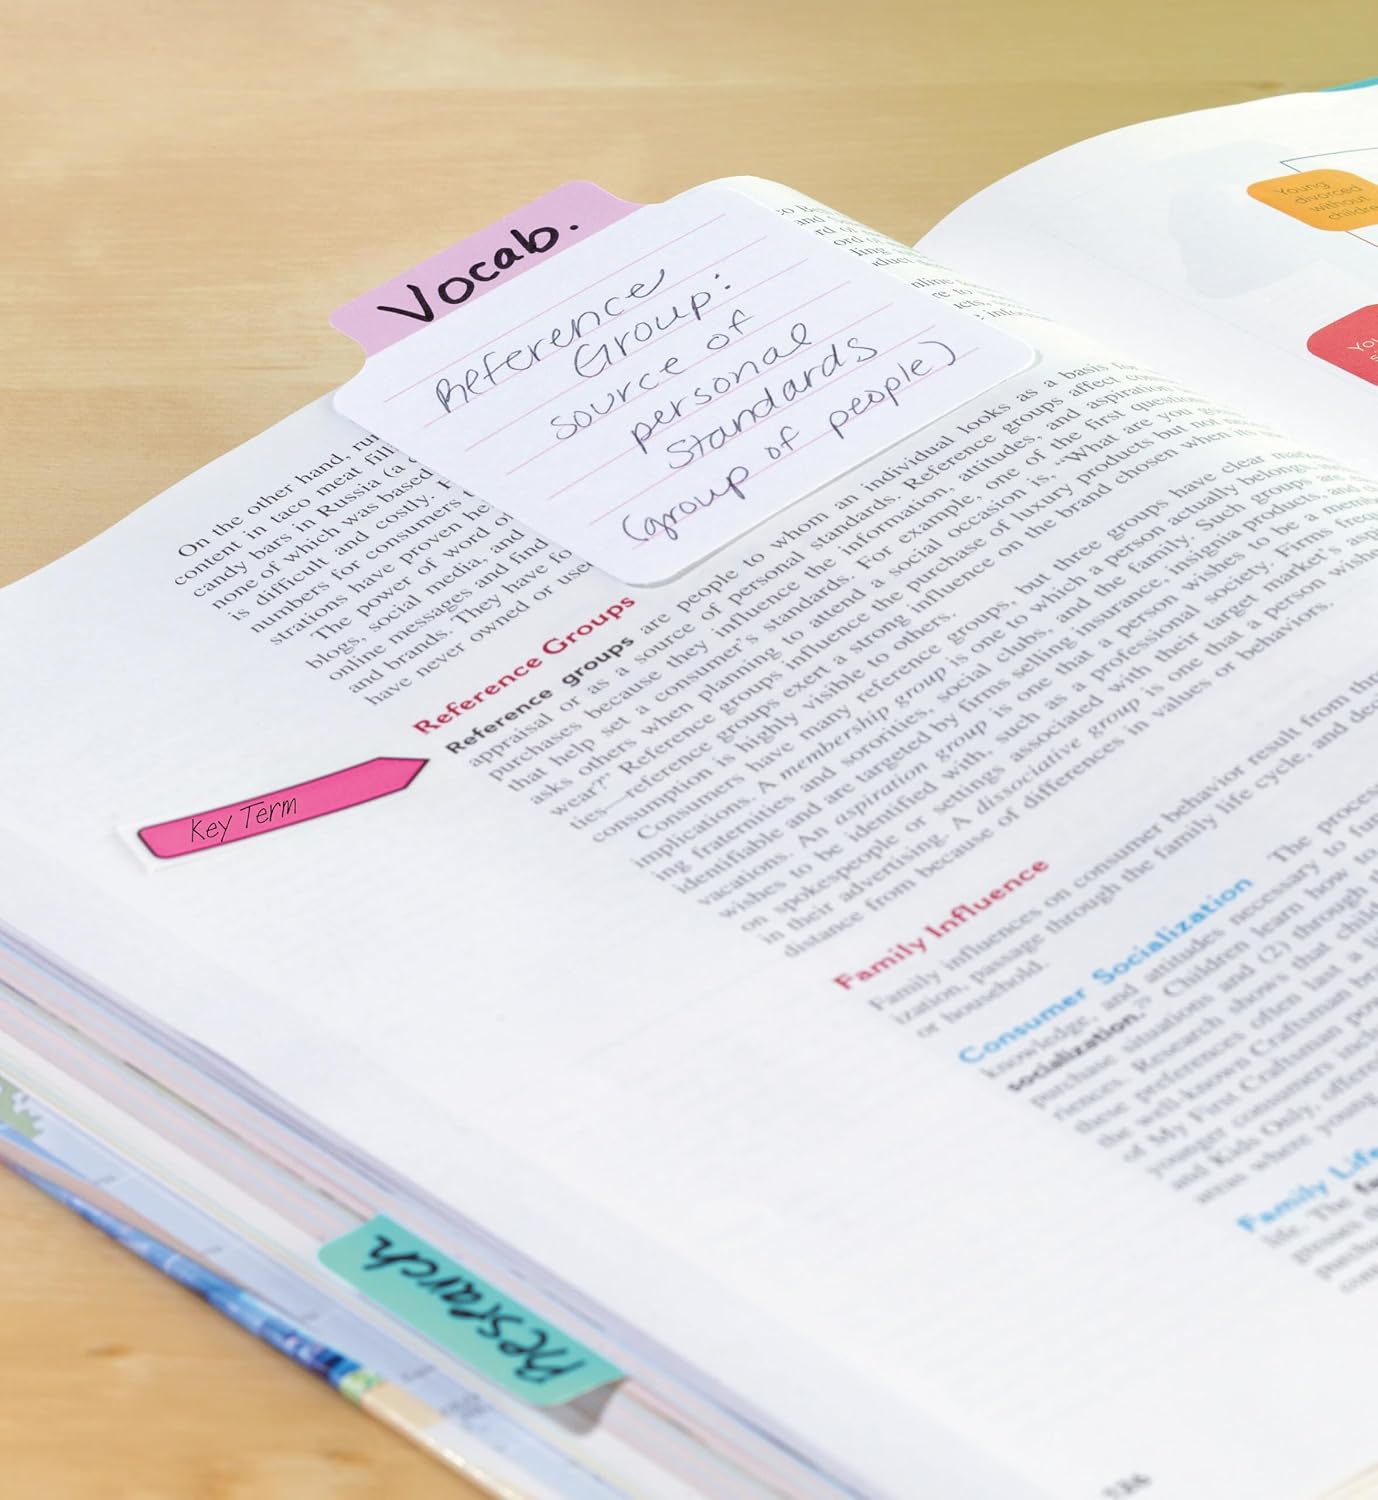 Vocab.
Reference
Group:
source of
personal
standards
(group of people)
On the other hand, ru
content in taco meat fill
candy bars in Russia (a
none of which was based
is difficult and costly.
numbers for consumers
strations have proven he
The power of word o
blogs, social media, and
online messages and find
and brands. They have fo
have never owned or use
Reference Groups
Reference groups are people to whom an individual looks as a basis
appraisal or as a source of personal standards. Reference groups affect
purchases because they influence the information, attitudes, and aspiration
that help set a consumer's standards. For example, one of the first question
asks others when planning to attend a social occasion is, "What are you
wear?" Reference groups influence the purchase of luxury products but not
ties—reference groups exert a strong influence on the brand chosen when
consumption is highly visible to others.
Consumers have many reference groups, but three groups have clear
implications. A membership group is one to which a person actually belongs,
ing fraternities and sororities, social clubs, and the family. Such groups are
identifiable and are targeted by firms selling insurance, insignia products, and
vacations. An aspiration group is one that a person wishes to be a
wishes to be identified with, such as a professional society. Firms
on spokespeople or settings associated with their target market's
in their advertising. A dissociative group is one that a person
distance from because of differences in values or behaviors.
Key Term
Family Influence
Family influences on consumer behavior result from
ization, passage through the family life cycle, and
or household.
Consumer Socialization The
knowledge, and attitudes necessary to
socialization.
purchase situations and (2) through
riences. Research shows that
these preferences often last a
the well-known Craftsman
of My First Craftsman
younger consumers
and Kids Only,
areas where young
Family Life
life. The
Research
Young
divorced
without
126